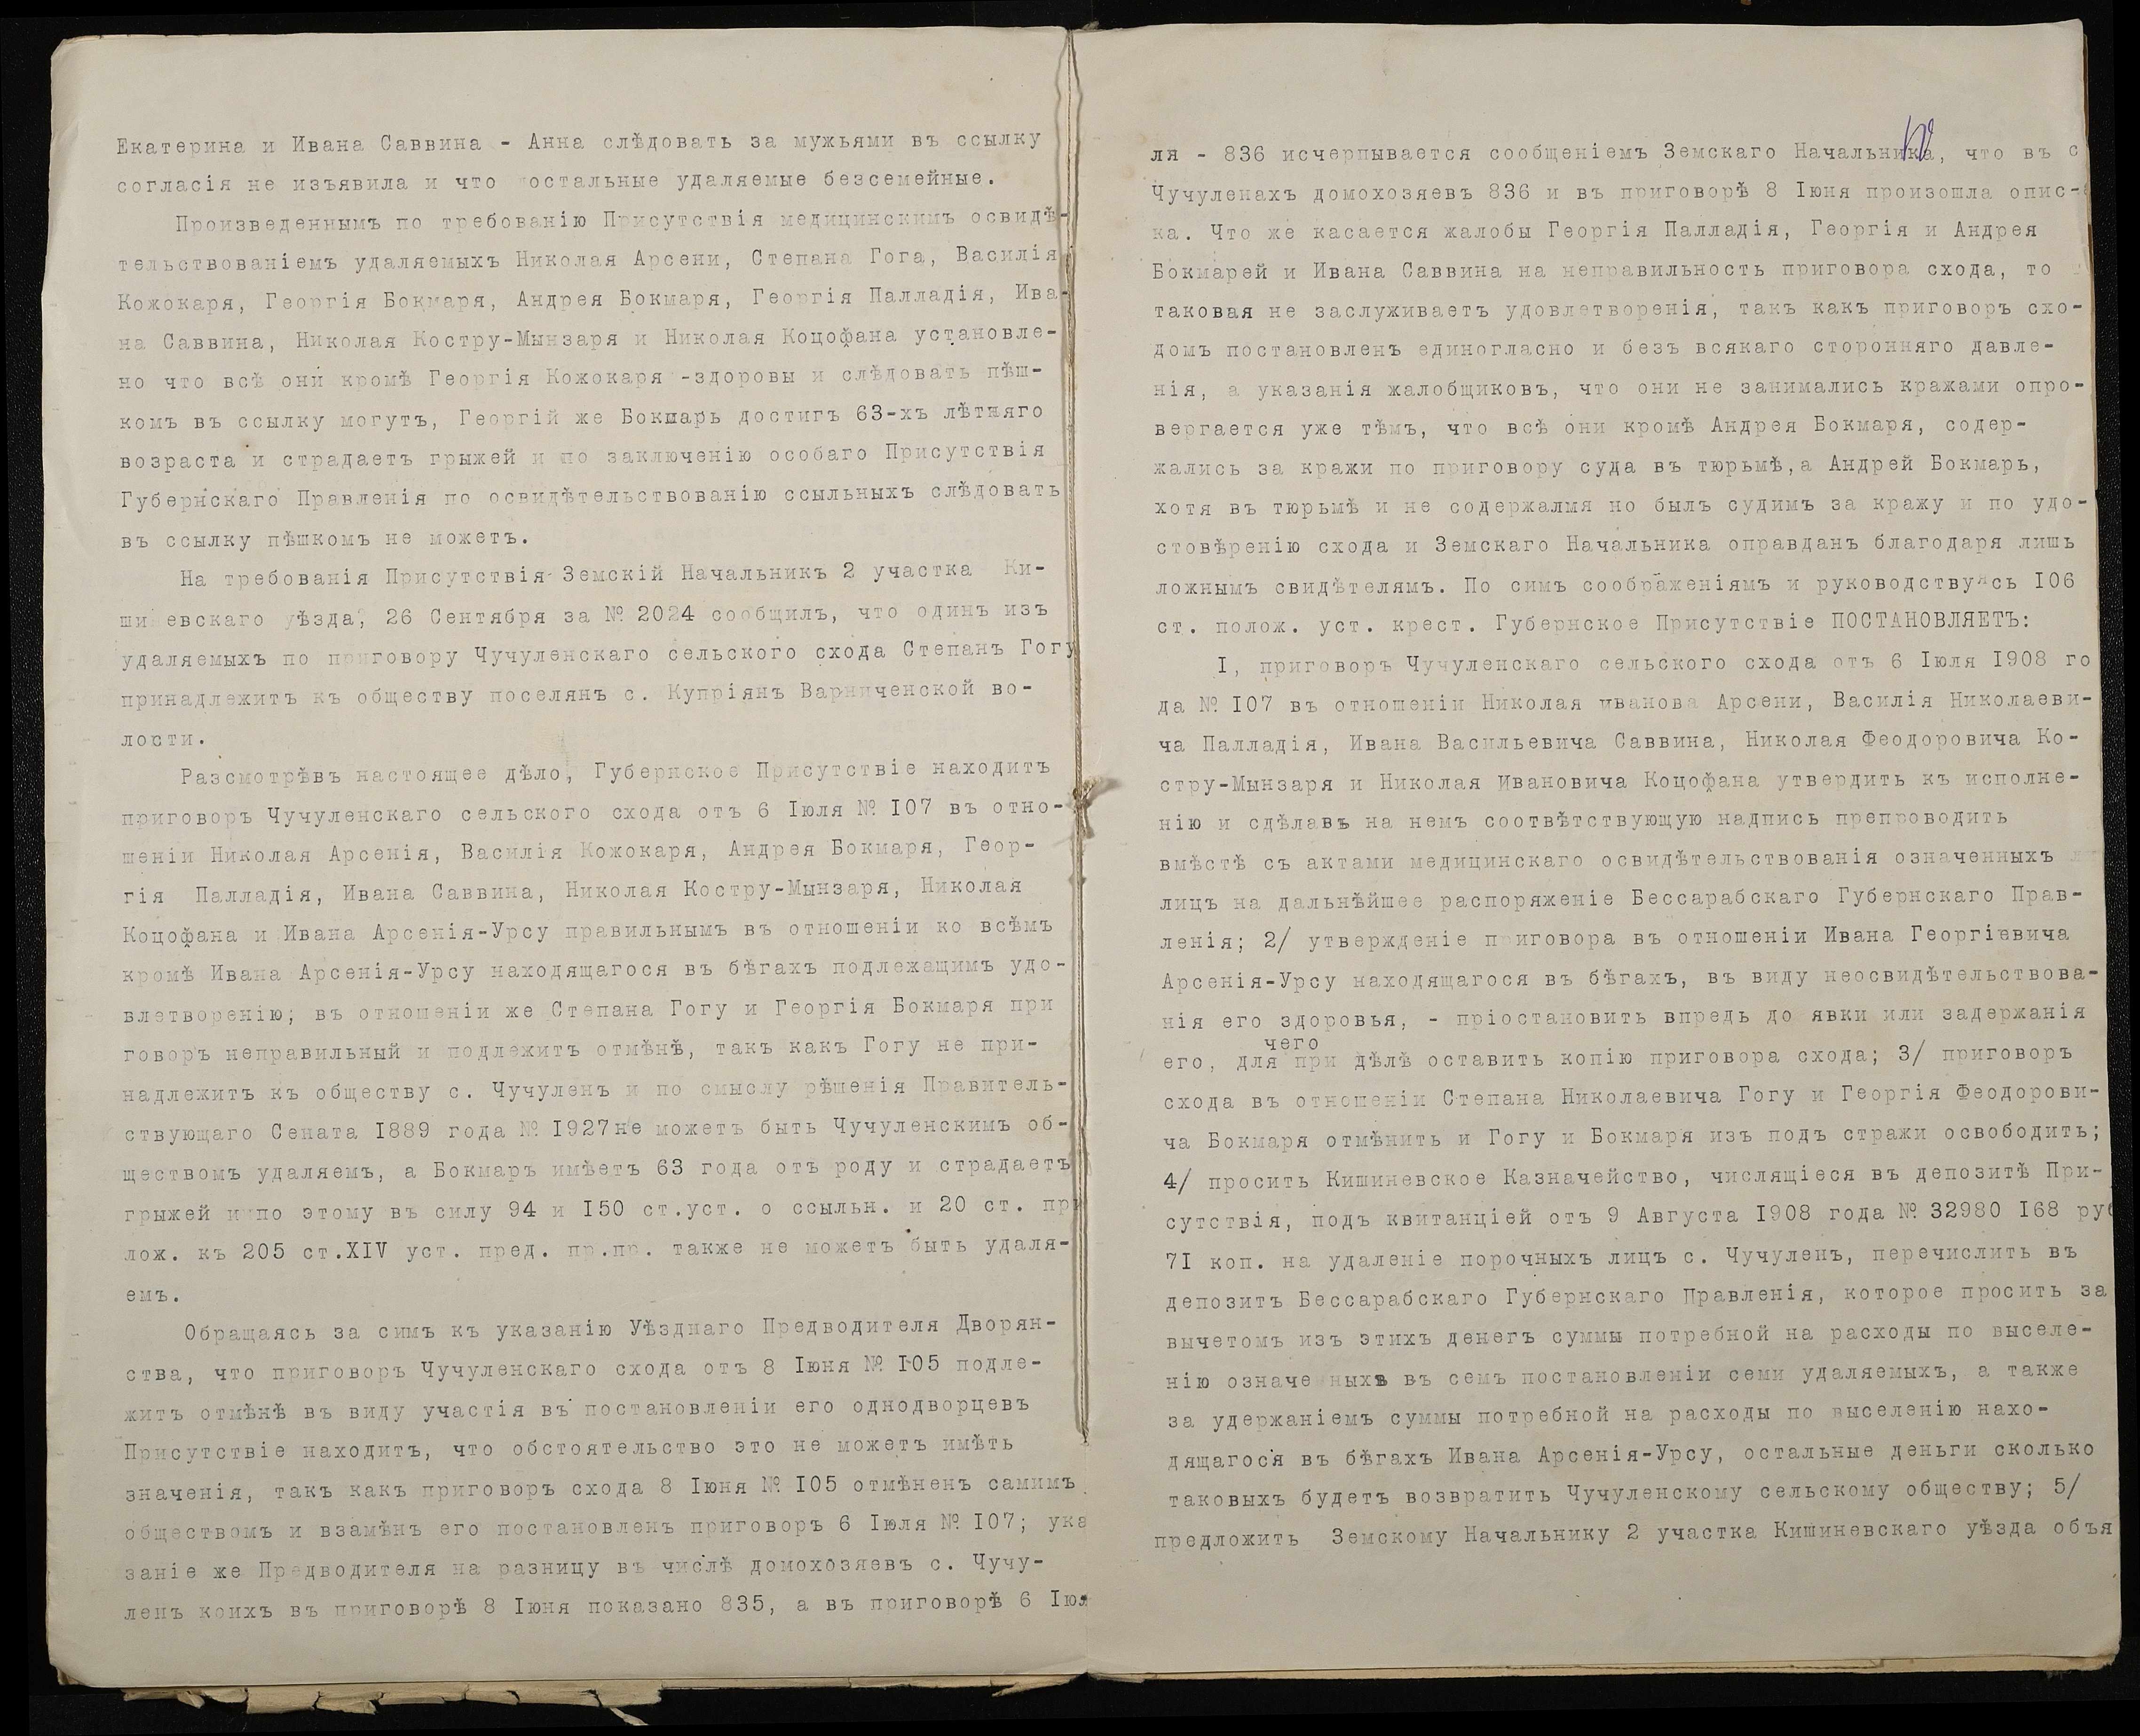 Екатерина и Ивана Саввина - Анна слѣдовать за мужьями въ ссылку
согласія не изъявила и что остальные удаляемые безсемейные.
Произведеннымъ по требованію Присутствія медицинскимъ освидѣ-
тельствованіемъ удаляемыхъ Николая Арсени, Степана Гога, Василія
Кожокаря, Георгія Бокмаря, Андрея Бокмаря, Георгія Палладія, Ива-
на Саввина, Николая Костру-Мынзаря и Николая Коцофана установле-
но что всѣ они кромѣ Георгія Кожокаря -здоровы и слѣдовать пѣш-
комъ въ ссылку могутъ, Георгій же Бокмарь достигъ 63-хъ лѣтняго
возраста и страдаетъ грыжей и по заключенію особаго Присутствія
Губернскаго Правленія по освидѣтельствованію ссыльныхъ слѣдовать
въ ссылку пѣшкомъ не можетъ.
На требованія Присутствія Земскій Начальникъ 2 участка Ки-
шиневскаго уѣзда, 26 Сентября за № 2024 сообщилъ, что одинъ изъ
удаляемыхъ по приговору Чучуленскаго сельского схода Степанъ Гогу
принадлежитъ къ обществу поселянъ с. Купріянъ Варниченской во-
лости.
Разсмотрѣвъ настоящее дѣло, Губернское Присутствіе находитъ
приговоръ Чучуленскаго сельского схода отъ 6 Іюля № I07 въ отно-
шеніи Николая Арсенія, Василія Кожокаря, Андрея Бокмаря, Геор-
гія Палладія, Ивана Саввина, Николая Костру-Мынзаря, Николая
Коцофана и Ивана Арсенія-Урсу правильнымъ въ отношеніи ко всѣмъ
кромѣ Ивана Арсенія-Урсу находящагося въ бѣгахъ подлежащимъ удо-
влетворенію; въ отношеніи же Степана Гогу и Георгія Бокмаря при
говоръ неправильный и подлежитъ отмѣнѣ, такъ какъ Гогу не при-
надлежитъ къ обществу с. Чучуленъ и по смыслу рѣшенія Правитель-
ствующаго Сената I889 года № I927не можетъ быть Чучуленскимъ об-
ществомъ удаляемъ, а Бокмаръ имѣетъ 63 года отъ роду и страдаетъ
грыжей и по этому въ силу 94 и I50 ст.уст. о ссыльн. и 20 ст. при
лож. къ 205 ст.XIV уст. пред. пр.пр. также не можетъ быть удаля-
емъ.
Обращаясь за симъ къ указанію Уѣзднаго Предводителя Дворян-
ства, что приговоръ Чучуленскаго схода отъ 8 Іюня № I05 подле-
житъ отмѣнѣ въ виду участія въ постановленіи его однодворцевъ
Присутствіе находитъ, что обстоятельство это не можетъ имѣть
значенія, такъ какъ приговоръ схода 8 Іюня № I05 отмѣненъ самимъ
обществомъ и взамѣнъ его постановленъ приговоръ 6 Іюля № I07; ука
заніе же Предводителя на разницу въ числѣ домохозяевъ с. Чучу-
ленъ коихъ въ приговорѣ 8 Іюня показано 835, а въ приговорѣ 6 Іюл
ля - 836 исчерпывается сообщеніемъ Земскаго Начальника, что въ с
Чучуленахъ домохозяевъ 836 и въ приговорѣ 8 Іюня произошла опис-
ка. Что же касается жалобы Георгія Палладія, Георгія и Андрея
Бокмарей и Ивана Саввина на неправильность приговора схода, то
таковая не заслуживаетъ удовлетворенія, такъ какъ приговоръ схо-
домъ постановленъ единогласно и безъ всякаго сторонняго давле-
нія, а указанія жалобщиковъ, что они не занимались кражами опро-
вергается уже тѣмъ, что всѣ они кромѣ Андрея Бокмаря, содер-
жались за кражи по приговору суда въ тюрьмѣ,а Андрей Бокмарь,
хотя въ тюрьмѣ и не содержалмя но былъ судимъ за кражу и по удо-
стовѣренію схода и Земскаго Начальника оправданъ благодаря лишь
ложнымъ свидѣтелямъ. По симъ соображеніямъ и руководствуясь I06
ст. полож. уст. крест. Губернское Присутствіе ПОСТАНОВЛЯЕТЪ:
I, приговоръ Чучуленскаго сельского схода отъ 6 Іюля I908 го
да № I07 въ отношеніи Николая иванова Арсени, Василія Николаеви-
ча Палладія, Ивана Васильевича Саввина, Николая Феодоровича Ко-
стру-Мынзаря и Николая Ивановича Коцофана утвердить къ исполне-
нію и сдѣлавъ на немъ соотвѣтствующую надпись препроводить
вмѣстѣ съ актами медицинскаго освидѣтельствованія означенныхъ
лицъ на дальнѣйшее распоряженіе Бессарабскаго Губернскаго Прав-
ленія; 2/ утвержденіе приговора въ отношеніи Ивана Георгіевича
Арсенія-Урсу находящагося въ бѣгахъ, въ виду неосвидѣтельствова-
нія его здоровья, - пріостановить впредь до явки или задержанія
чего
его, для при дѣлѣ оставить копію приговора схода; 3/ приговоръ
схода въ отношеніи Степана Николаевича Гогу и Георгія Феодорови-
ча Бокмаря отмѣнить и Гогу и Бокмаря изъ подъ стражи освободить;
4/ просить Кишиневское Казначейство, числящіеся въ депозитѣ При-
сутствія, подъ квитанціей отъ 9 Августа I908 года № 32980 I68 руб
7I коп. на удаленіе порочныхъ лицъ с. Чучуленъ, перечислить въ
депозитъ Бессарабскаго Губернскаго Правленія, которое просить за
вычетомъ изъ этихъ денегъ суммы потребной на расходы по выселе-
нію означенныхъ въ семъ постановленіи семи удаляемыхъ, а также
за удержаніемъ суммы потребной на расходы по выселенію нахо-
дящагося въ бѣгахъ Ивана Арсенія-Урсу, остальные деньги сколько
таковыхъ будетъ возвратить Чучуленскому сельскому обществу; 5/
предложить Земскому Начальнику 2 участка Кишиневскаго уѣзда объя